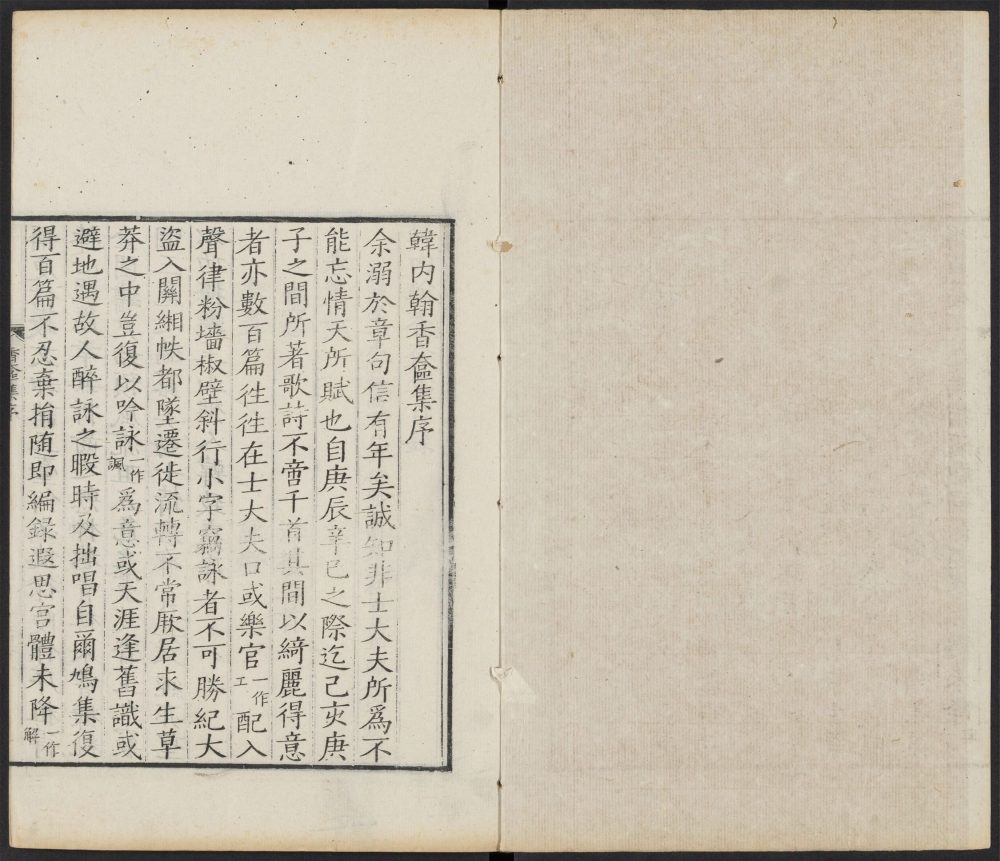 韓内翰香奩集序
余溺於章句信有年矣誠知非士大夫所為不
能忘情天所賦也自庚辰辛巳之際迄己亥庚
子之間所著歌詩不啻千首其間以綺麗得意
者亦數百篇徃徃在士大夫口或樂官一作工配入
聲律粉墻椒壁斜行小字竊詠者不可勝紀大
盜入關緗帙都墜遷徙流轉不常厥居求生草
莽之中豈復以吟詠一作諷為意或天涯逢舊識或
避地遇故人醉詠之暇時及拙唱自爾鳩集復
得百篇不忍棄捐随即編録遐思宫體未降一作解
香奩集序